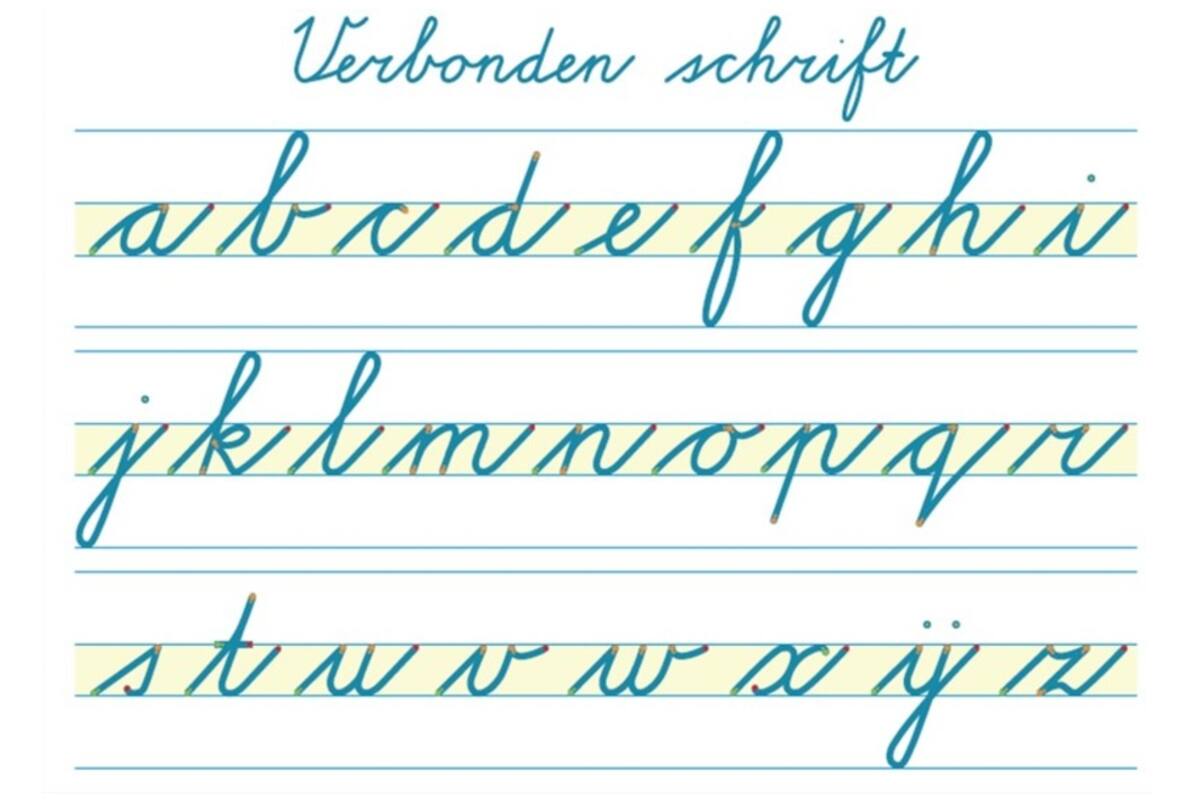 Verbonden schrift
a b c d e f g h i
j k l m n o p q r
s t u v w x ÿ z